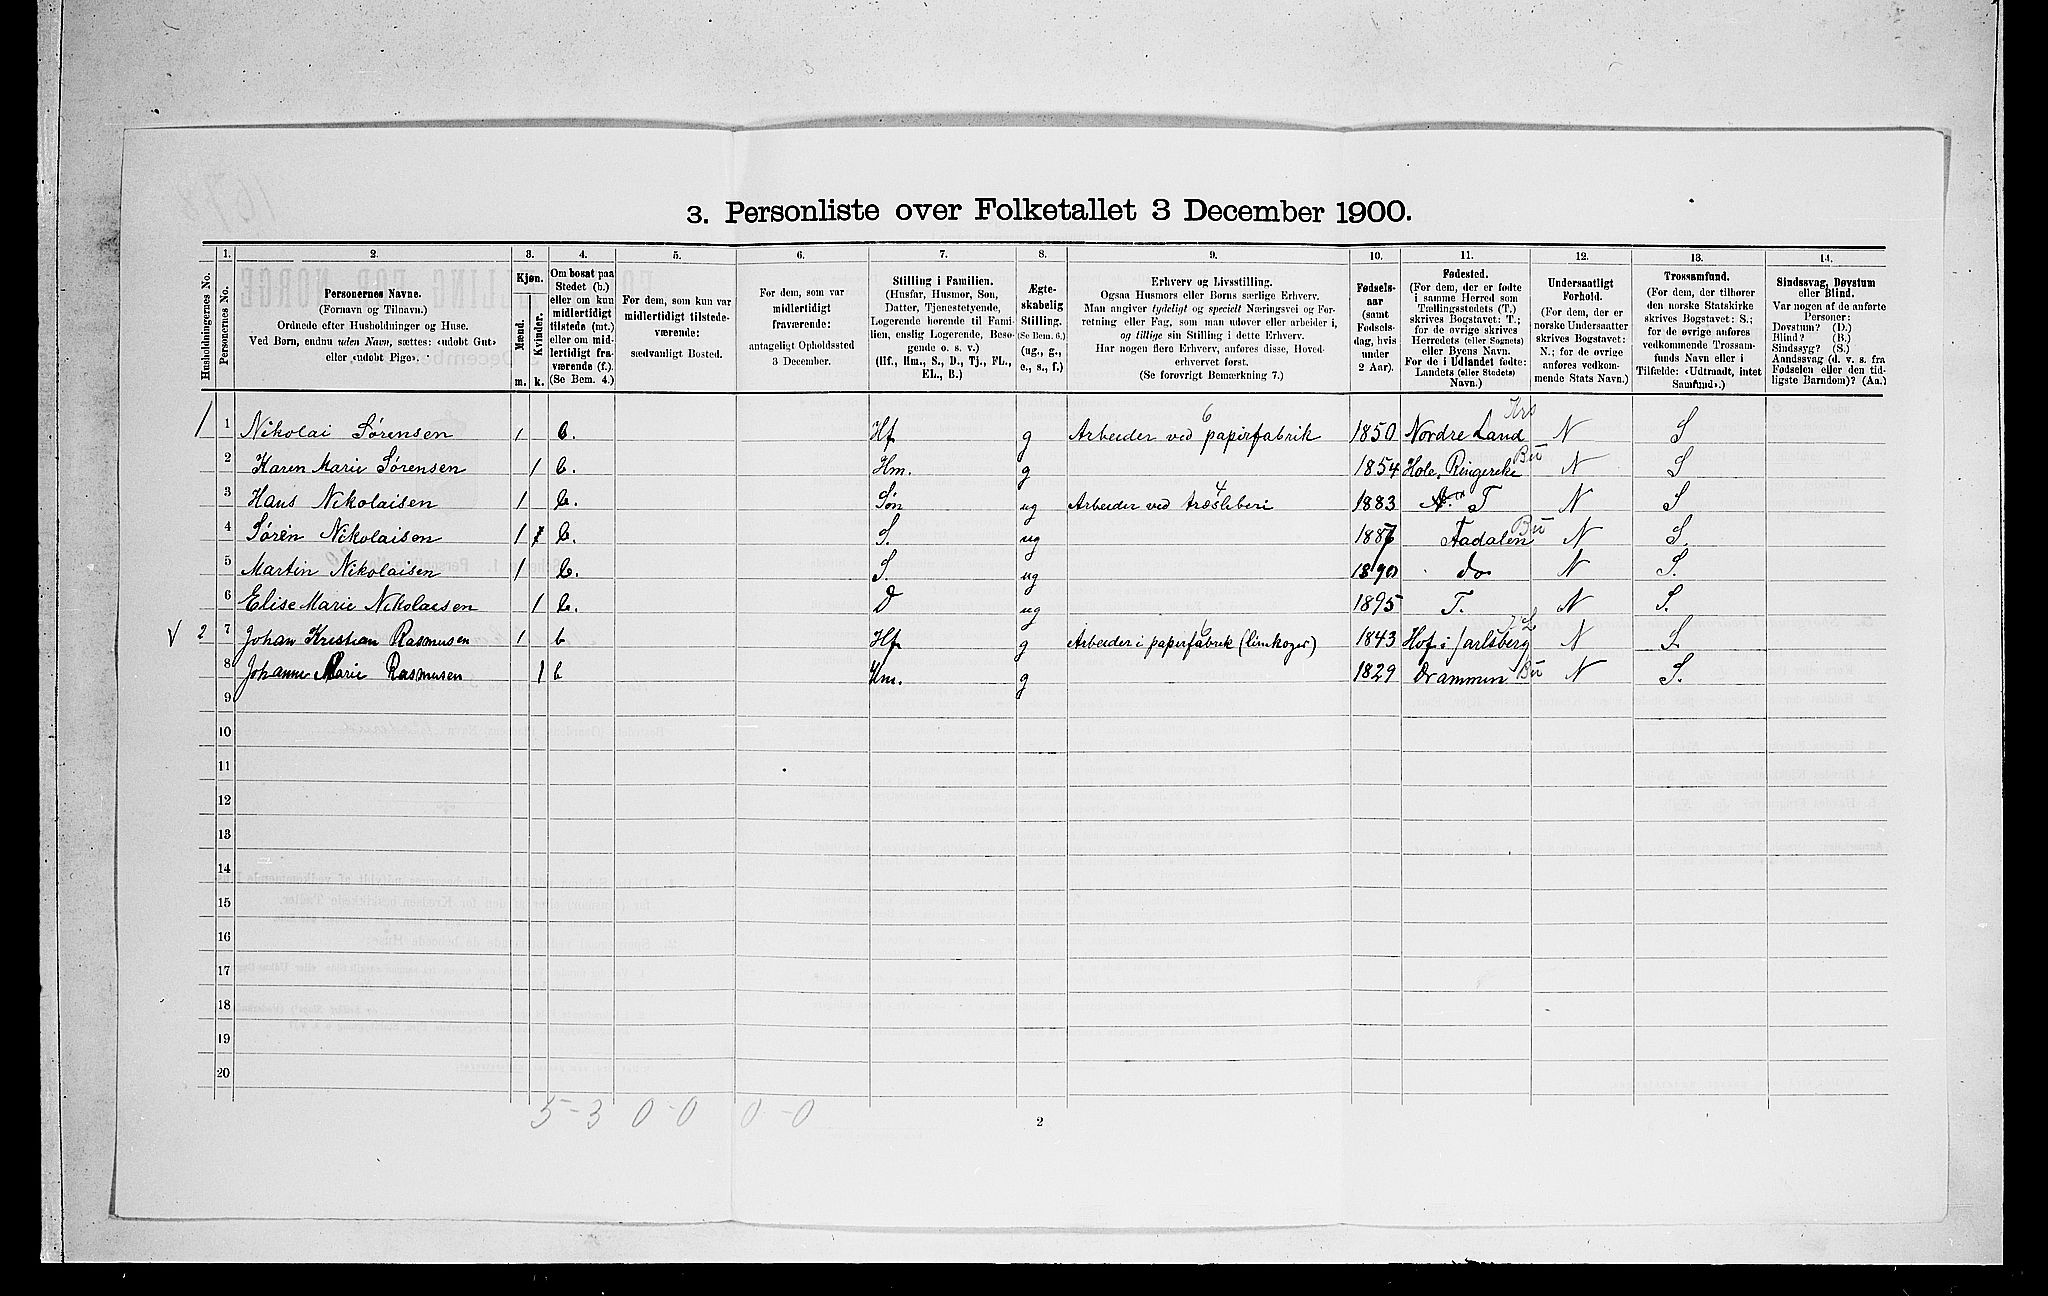 3. Personliste over Folketallet 3 December 1900.
1. 2. 3. 4. 5. 6. 7. 8. 9. 10. 11. 12. 13. 14.
Husholdningernes No.
Personernes No.
Personernes Navne.
(Fornavn og Tilnavn.)
Ordnede efter Husholdninger og Huse.
Ved Børn, endnu uden Navn, sættes: «udøbt Gut»
eller «udøbt Pige».
Kjøn.
Mænd.
Kvinder.
m. k.
Om bosat paa
Stedet (b.)
eller om kun
midlertidigt
tilstede (mt.)
eller om mid-
lertidigt fra-
værende (f.)
(Se Bem. 4.)
For dem, som kun var
midlertidigt tilstede-
værende:
sædvanligt Bosted.
For dem, som var
midlertidigt
fraværende:
antageligt Opholdssted
3 December.
Stilling i Familien.
(Husfar, Husmor, Søn,
Datter, Tjenestetyende,
Logerende hørende til Fami-
lien, enslig Logerende, Besø-
gende o. s. v.)
(Hf., Hm., S., D., Tj., FL.,
EL., B.)
Ægte-
skabelig
Stilling.
(Se Bem. 6.)
(ug., g.,
e., s., f.)
Erhverv og Livsstilling.
Ogsaa Husmors eller Børns særlige Erhverv.
Man angiver tydeligt og specielt Næringsvei og For-
retning eller Fag, som man udøver eller arbeider i,
og tillige sin Stilling i dette Erhverv.
Har nogen flere Erhverv, anføres disse, Hoved-
erhvervet først.
(Se forøvrigt Bemærkning 7.)
Fødsels-
aar
(samt
Fødsels-
dag, hvis
under
2 Aar).
Fødested.
(For dem, der er fødte
i samme Herred som
Tællingsstedets (T,)
skrives Bogstavet: T.;
for de øvrige skrives
Herredets (eller Sognets)
eller Byens Navn.
For de i Udlandet fødte:
Landets (eller Stedets)
Navn.)
Undersaatligt
Forhold.
(For dem, der er
norske Undersaatter
skrives Bogstavet:
N.; for de øvrige
anføres vedkom-
mende Stats Navn.)
Trossamfund.
(For dem, der tilhører
den norske Statskirke
skrives Bogstavet: S.;
for de øvrige anføres
vedkommende Trossam-
funds Navn eller i
Tilfælde: «Udtraadt, intet
Samfund».)
Sindssvag, Døvstum
eller Blind.
Var nogen af de anførte
Personer:
Døvstum? (D.)
Blind? (B.)
Sindssyg? (S.)
Aandssvag (d. v. s. fra
Fødselen eller den tid-
ligste Barndom)? (Aa.)
1 1 Nikolai Sørensen 1 b. Hf g Arbeider ved papirfabrik 6 1850 Nordre Land Krs N S
2 Karen Marie Sørensen 1 b. Hm. g 1854 Hole, Ringerike Bu N S
3 Hans Nikolaisen 1 b. Søn ug Arbeider ved træsliberi 4 1883 T N S
4 Søren Nikolaisen 1 b. S. ug 1887 Aadalen Bu N S.
5 Martin Nikolaisen 1 b. S. ug 1890 do N S.
6 Elise Marie Nikolaisen 1 b. D ug 1895 T. N S.
2 7 Johan Kristian Rasmusen 1 b Hf g Arbeider i papirfabrik (limkoger) 6 1843 Hof i Jarlsberg N S.
8 Johanne Marie Rasmusen 1 b Hm. g 1829 Drammen Bu N S.
9
10
11
12
13
14
15
16
17
18
19
20
5-3 0-0 0-0
2